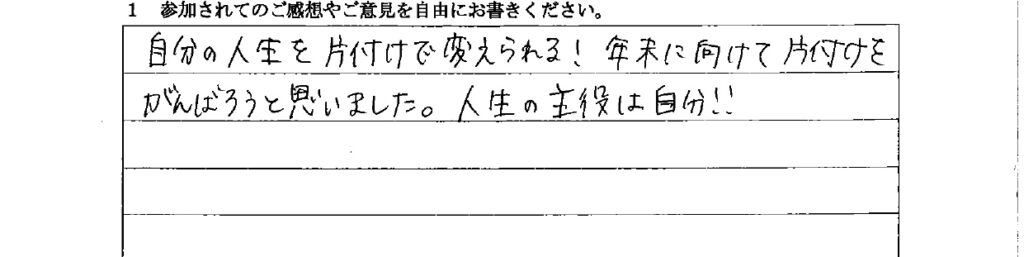 1 参加されてのご感想やご意見を自由にお書きください。
自分の人生を片付けで変えられる！年末に向けて片付けを
がんばろうと思いました。人生の主役は自分!!